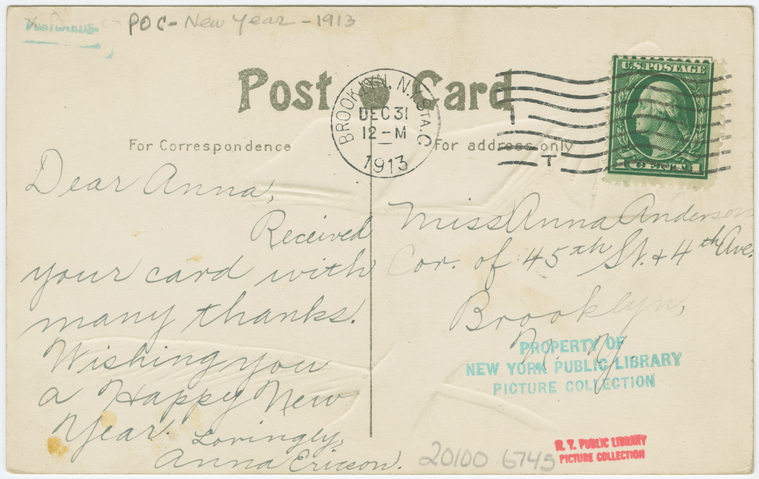 POC - New Year - 1913
Post Card
BROOKLYN, N.Y. STA. C
DEC 31
12-M
1913
U.S. POSTAGE
For Correspondence
For address only
Dear Anna,
Received
your card with
many thanks.
Wishing you
a Happy New
Year.
Lovingly,
Anna Ericson.
Miss Anna Anderson
Cor. of 45th St. & 4th Ave.
Brooklyn,
N. Y.
PROPERTY OF
NEW YORK PUBLIC LIBRARY
PICTURE COLLECTION
20100 6745
N. Y. PUBLIC LIBRARY
PICTURE COLLECTION